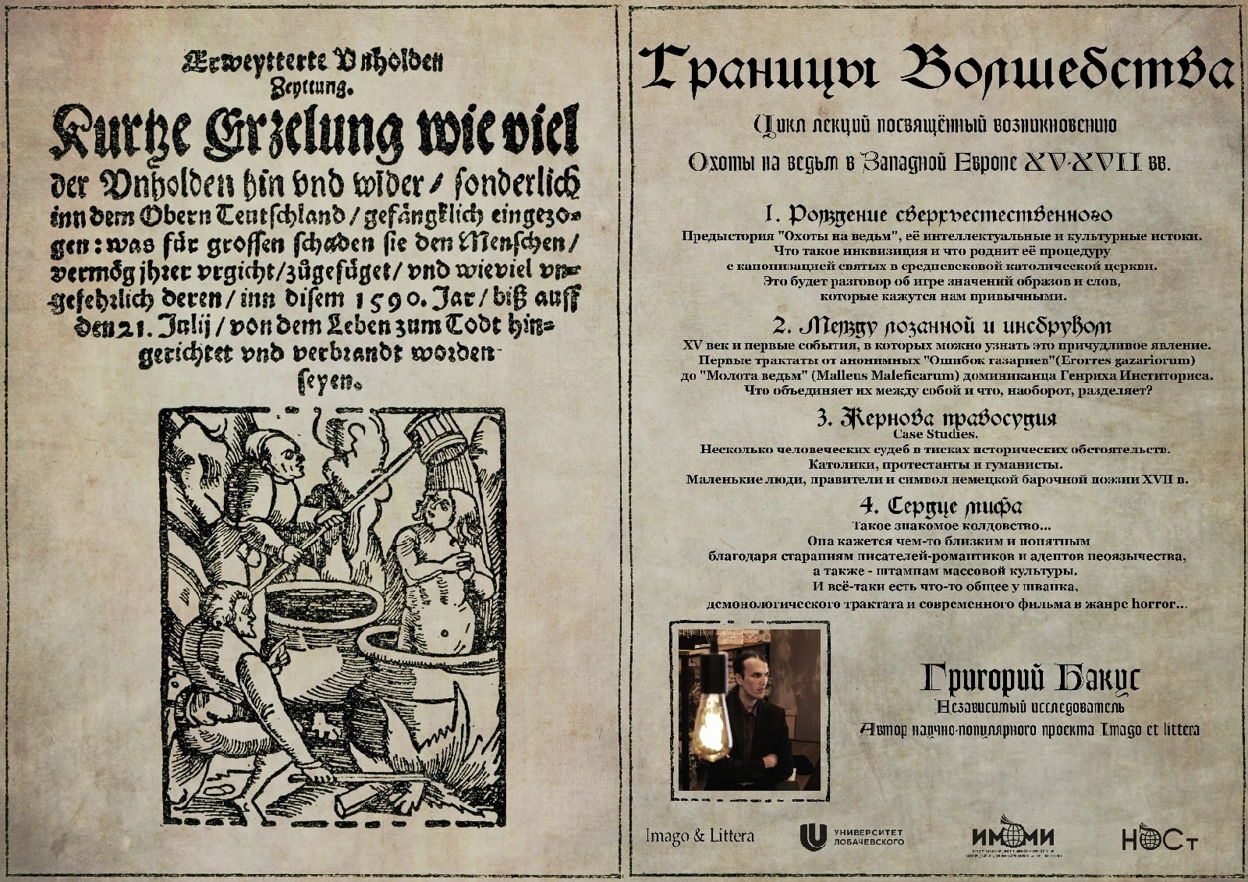 Erweytterte Vnholden
Zeyttung.
Kurtze Erzelung wie viel
der Vnholden hin vnd wider / sonderlich
inn dem Obern Teutschland / gefängklich eingezo⸗
gen : was für grossen schaden sie den Menschen /
vermög jhrer vrgicht / zůgefüget / vnd wieviel vn⸗
gefehrlich deren / inn disem 1590. Jar / biß auff
den 21. Julij / von dem Leben zum Todt hin⸗
gerichtet vnd verbrandt worden
seyen.
Границы Волшебства
Цикл лекций посвящённый возникновению
Охоты на ведьм в Западной Европе XV-XVII вв.
1. Рождение сверхъестественного
Предыстория "Охоты на ведьм", её интеллектуальные и культурные истоки.
Что такое инквизиция и что роднит её процедуру
с канонизацией святых в средневековой католической церкви.
Это будет разговор об игре значений образов и слов,
которые кажутся нам привычными.
2. Между лозанной и инсбруком
XV век и первые события, в которых можно узнать это причудливое явление.
Первые трактаты от анонимных "Ошибок газариев"(Errores gazariorum)
до "Молота ведьм" (Malleus Maleficarum) доминиканца Генриха Инститориса.
Что объединяет их между собой и что, наоборот, разделяет?
3. Жернова правосудия
Case Studies.
Несколько человеческих судеб в тисках исторических обстоятельств.
Католики, протестанты и гуманисты.
Маленькие люди, правители и символ немецкой барочной поэзии XVII в.
4. Сердце мифа
Такое знакомое колдовство...
Она кажется чем-то близким и понятным
благодаря стараниям писателей-романтиков и адептов неоязычества,
а также - штампам массовой культуры.
И всё-таки есть что-то общее у шванка,
демонологического трактата и современного фильма в жанре horror...
Григорий Бакус
Независимый исследователь
Автор научно-популярного проекта Imago et littera
Imago & Littera
УНИВЕРСИТЕТ
ЛОБАЧЕВСКОГО
ИМОМИ
НОСТ